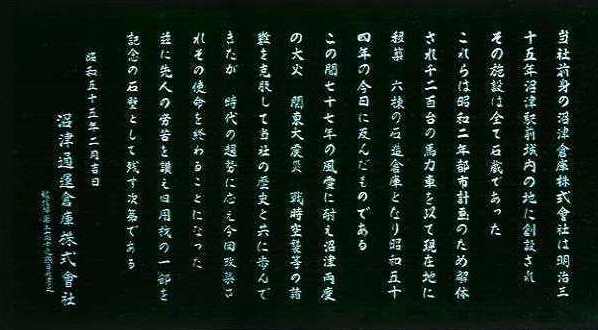 当社前身の沼津倉庫株式會社は明治三
十五年沼津駅前城内の地に創設され
その施設は全て石蔵であった
これらは昭和二年都市計画のため解体
され千二百台の馬力車を以て現在地に
移築 六棟の石造倉庫となり昭和五十
四年の今日に及んだものである
この間七十七年の風雪に耐え沼津両度
の大火 関東大震災 戦時空襲等の諸
難を克服して当社の歴史と共に歩んで
きたが 時代の趨勢に応え今回改築さ
れその使命を終わることになった
茲に先人の労苦を讃え旧用材の一部を
記念の石壁として残す次第である
昭和五十五年二月吉日
沼津通運倉庫株式會社